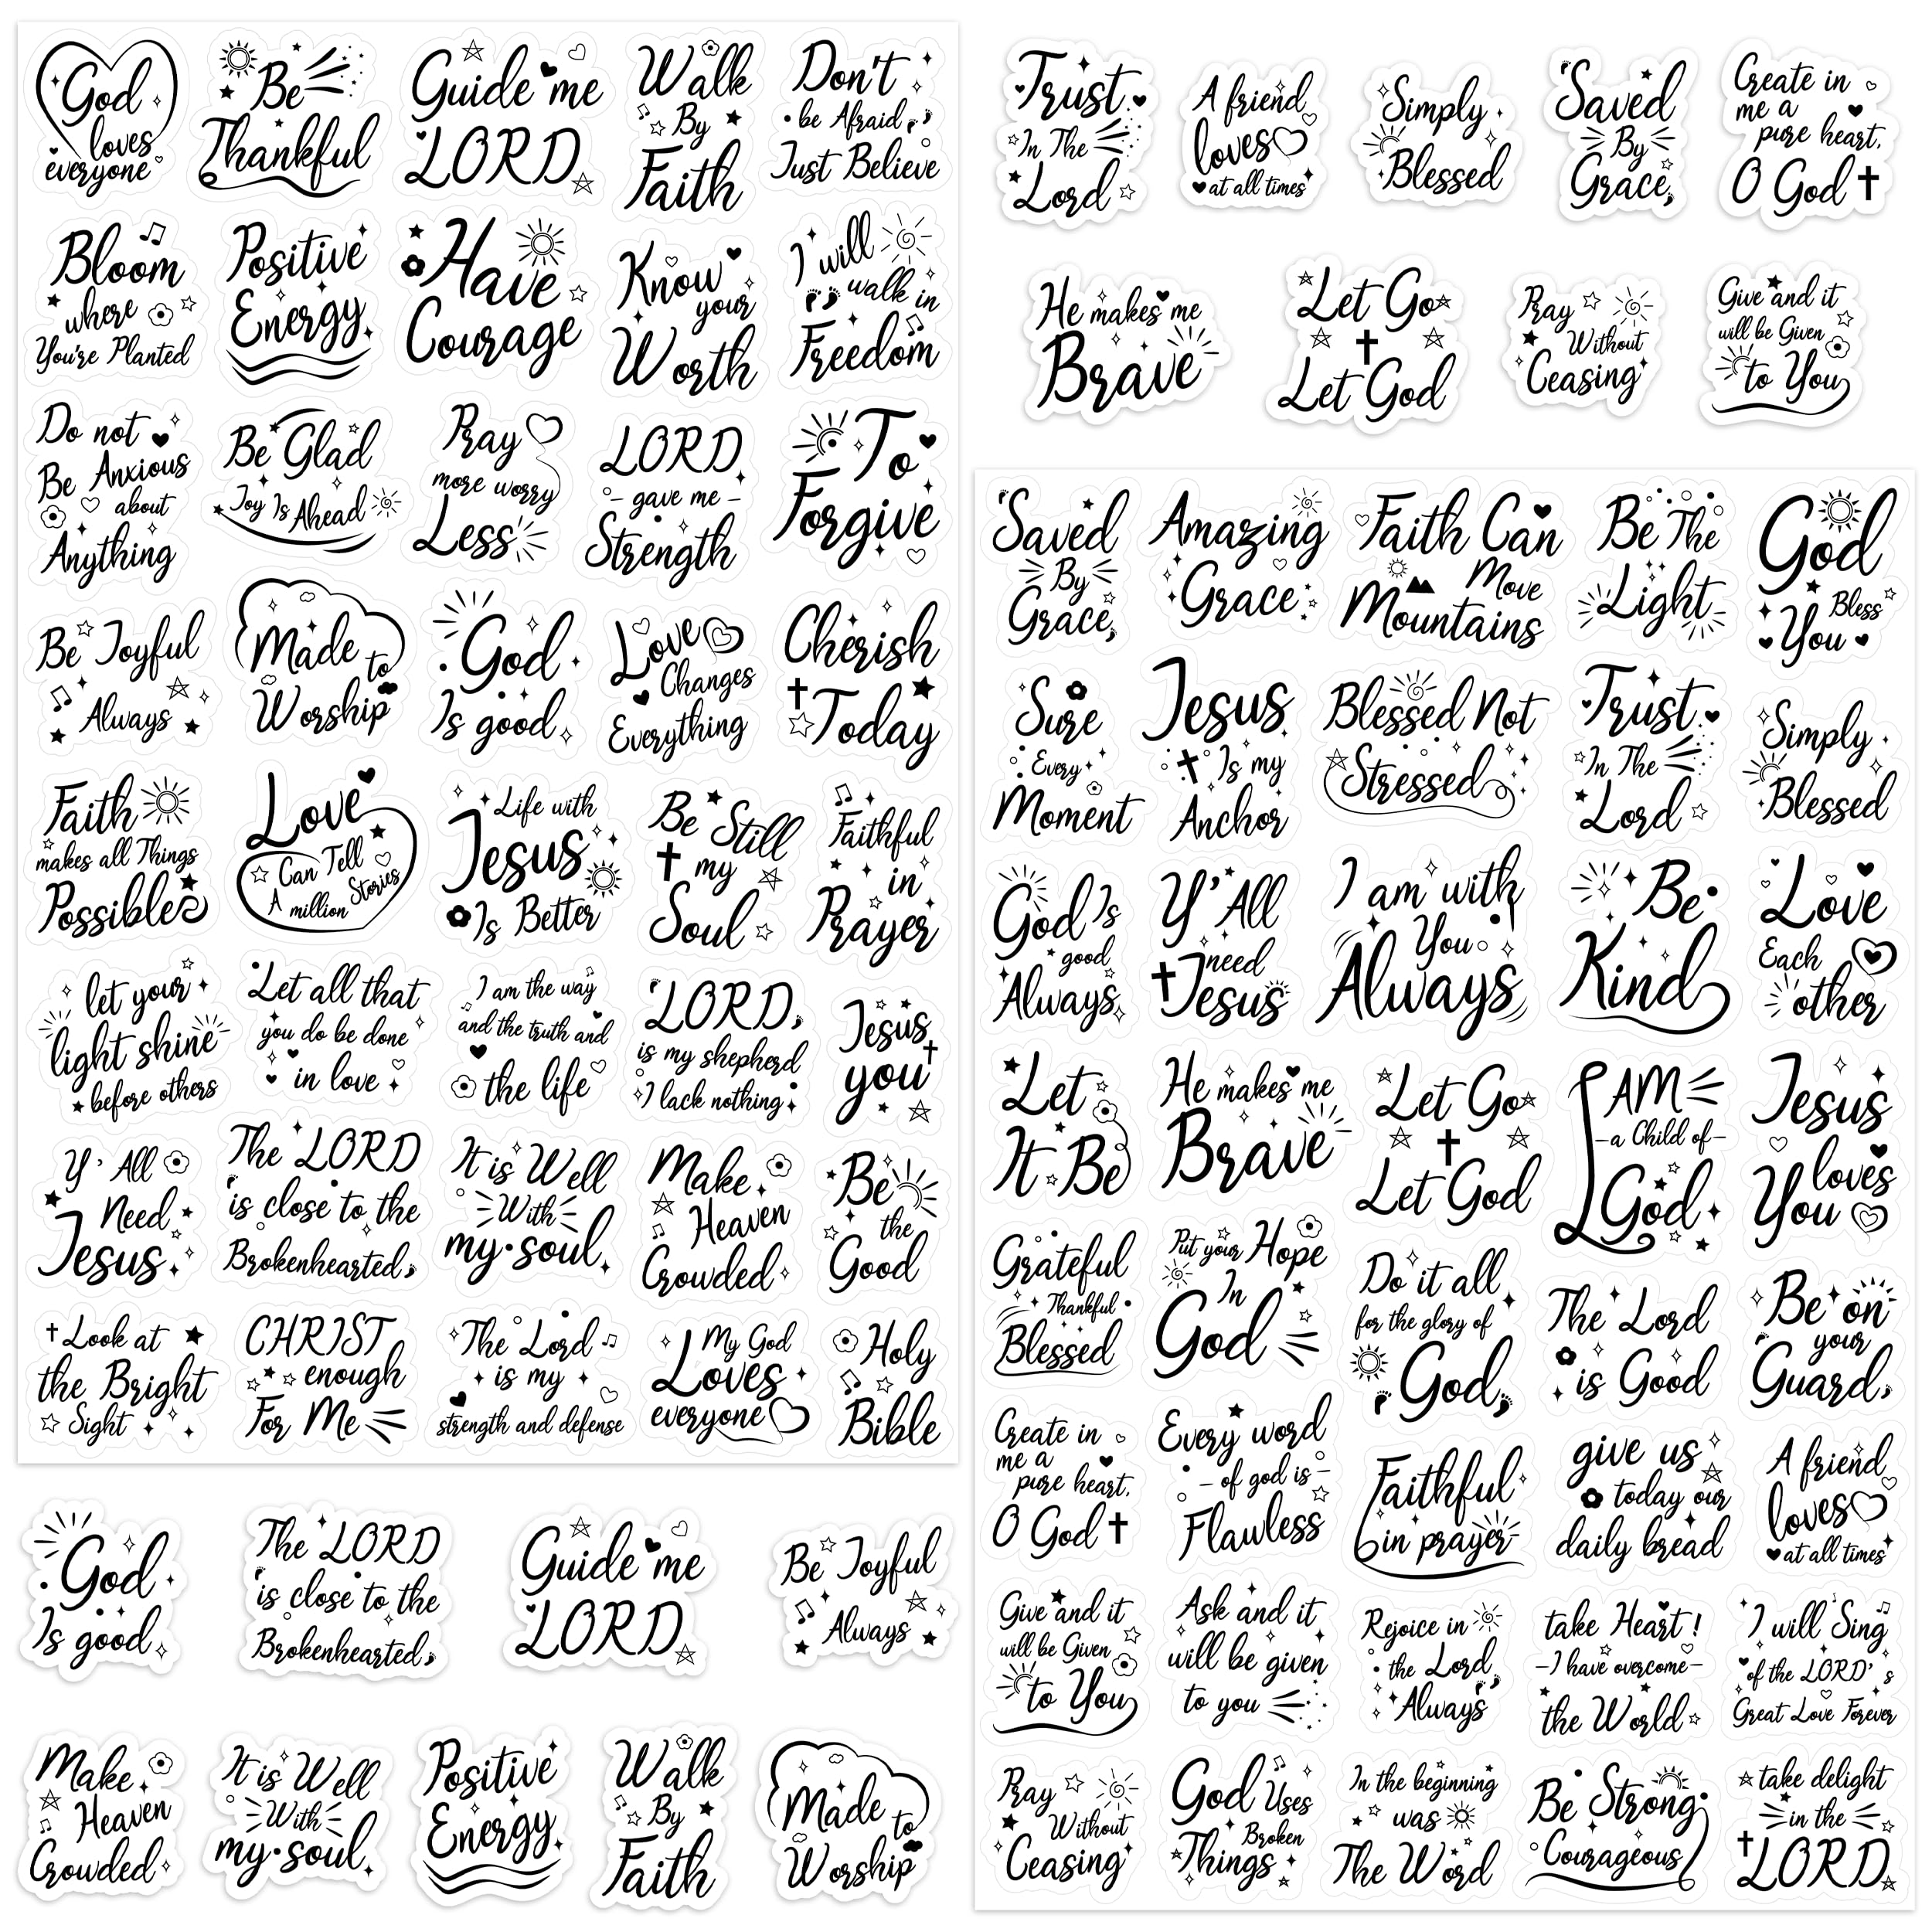 God
loves
everyone
Be
Thankful
Guide me
LORD
Walk
By
Faith
Don't
be Afraid
Just Believe
Bloom
where
You're Planted
Positive
Energy
Have
Courage
Know
your
Worth
I will
walk in
Freedom
Do not
Be Anxious
about
Anything
Be Glad
Joy Is Ahead
Pray
more worry
Less
LORD
gave me
Strength
To
Forgive
Be Joyful
Always
Made
to
Worship
God
Is good
Love
Changes
Everything
Cherish
Today
Faith
makes all Things
Possible
Love
Can Tell
A million Stories
Life with
Jesus
Is Better
Be Still
my
Soul
Faithful
in
Prayer
let your
light shine
before others
Let all that
you do be done
in love
I am the way
and the truth and
the life
LORD,
is my shepherd
I lack nothing
Jesus
you
Y' All
Need
Jesus
The LORD
is close to the
Brokenhearted
It is Well
With
my soul
Make
Heaven
Crowded
Be
the
Good
Look at
the Bright
Sight
CHRIST
enough
For Me
The Lord
is my
strength and defense
My God
Loves
everyone
Holy
Bible
God
Is good
The LORD
is close to the
Brokenhearted
Guide me
LORD
Be Joyful
Always
Make
Heaven
Crowded
It is Well
With
my soul
Positive
Energy
Walk
By
Faith
Made
to
Worship
Trust
In The
Lord
A friend
loves
at all times
Simply
Blessed
Saved
By
Grace
Create in
me a
pure heart,
O God
He makes me
Brave
Let Go
Let God
Pray
Without
Ceasing
Give and it
will be Given
to You
Saved
By
Grace
Amazing
Grace
Faith Can
Move
Mountains
Be The
Light
God
Bless
You
Sure
Every
Moment
Jesus
Is my
Anchor
Blessed Not
Stressed
Trust
In The
Lord
Simply
Blessed
God Is
good
Always
Y' All
need
Jesus
I am with
You
Always
Be
Kind
Love
Each
other
Let
It Be
He makes me
Brave
Let Go
Let God
I AM
a Child of
God
Jesus
loves
You
Grateful
Thankful
Blessed
Put your Hope
In
God
Do it all
for the glory of
God
The Lord
is Good
Be on
your
Guard
Create in
me a
pure heart,
O God
Every word
of god is
Flawless
Faithful
in prayer
give us
today our
daily bread
A friend
loves
at all times
Give and it
will be Given
to You
Ask and it
will be given
to you
Rejoice in
the Lord
Always
take Heart !
I have overcome
the World
I will Sing
of the LORD' s
Great Love Forever
Pray
Without
Ceasing
God Uses
Broken
Things
In the beginning
was
The Word
Be Strong
Courageous
take delight
in the
LORD